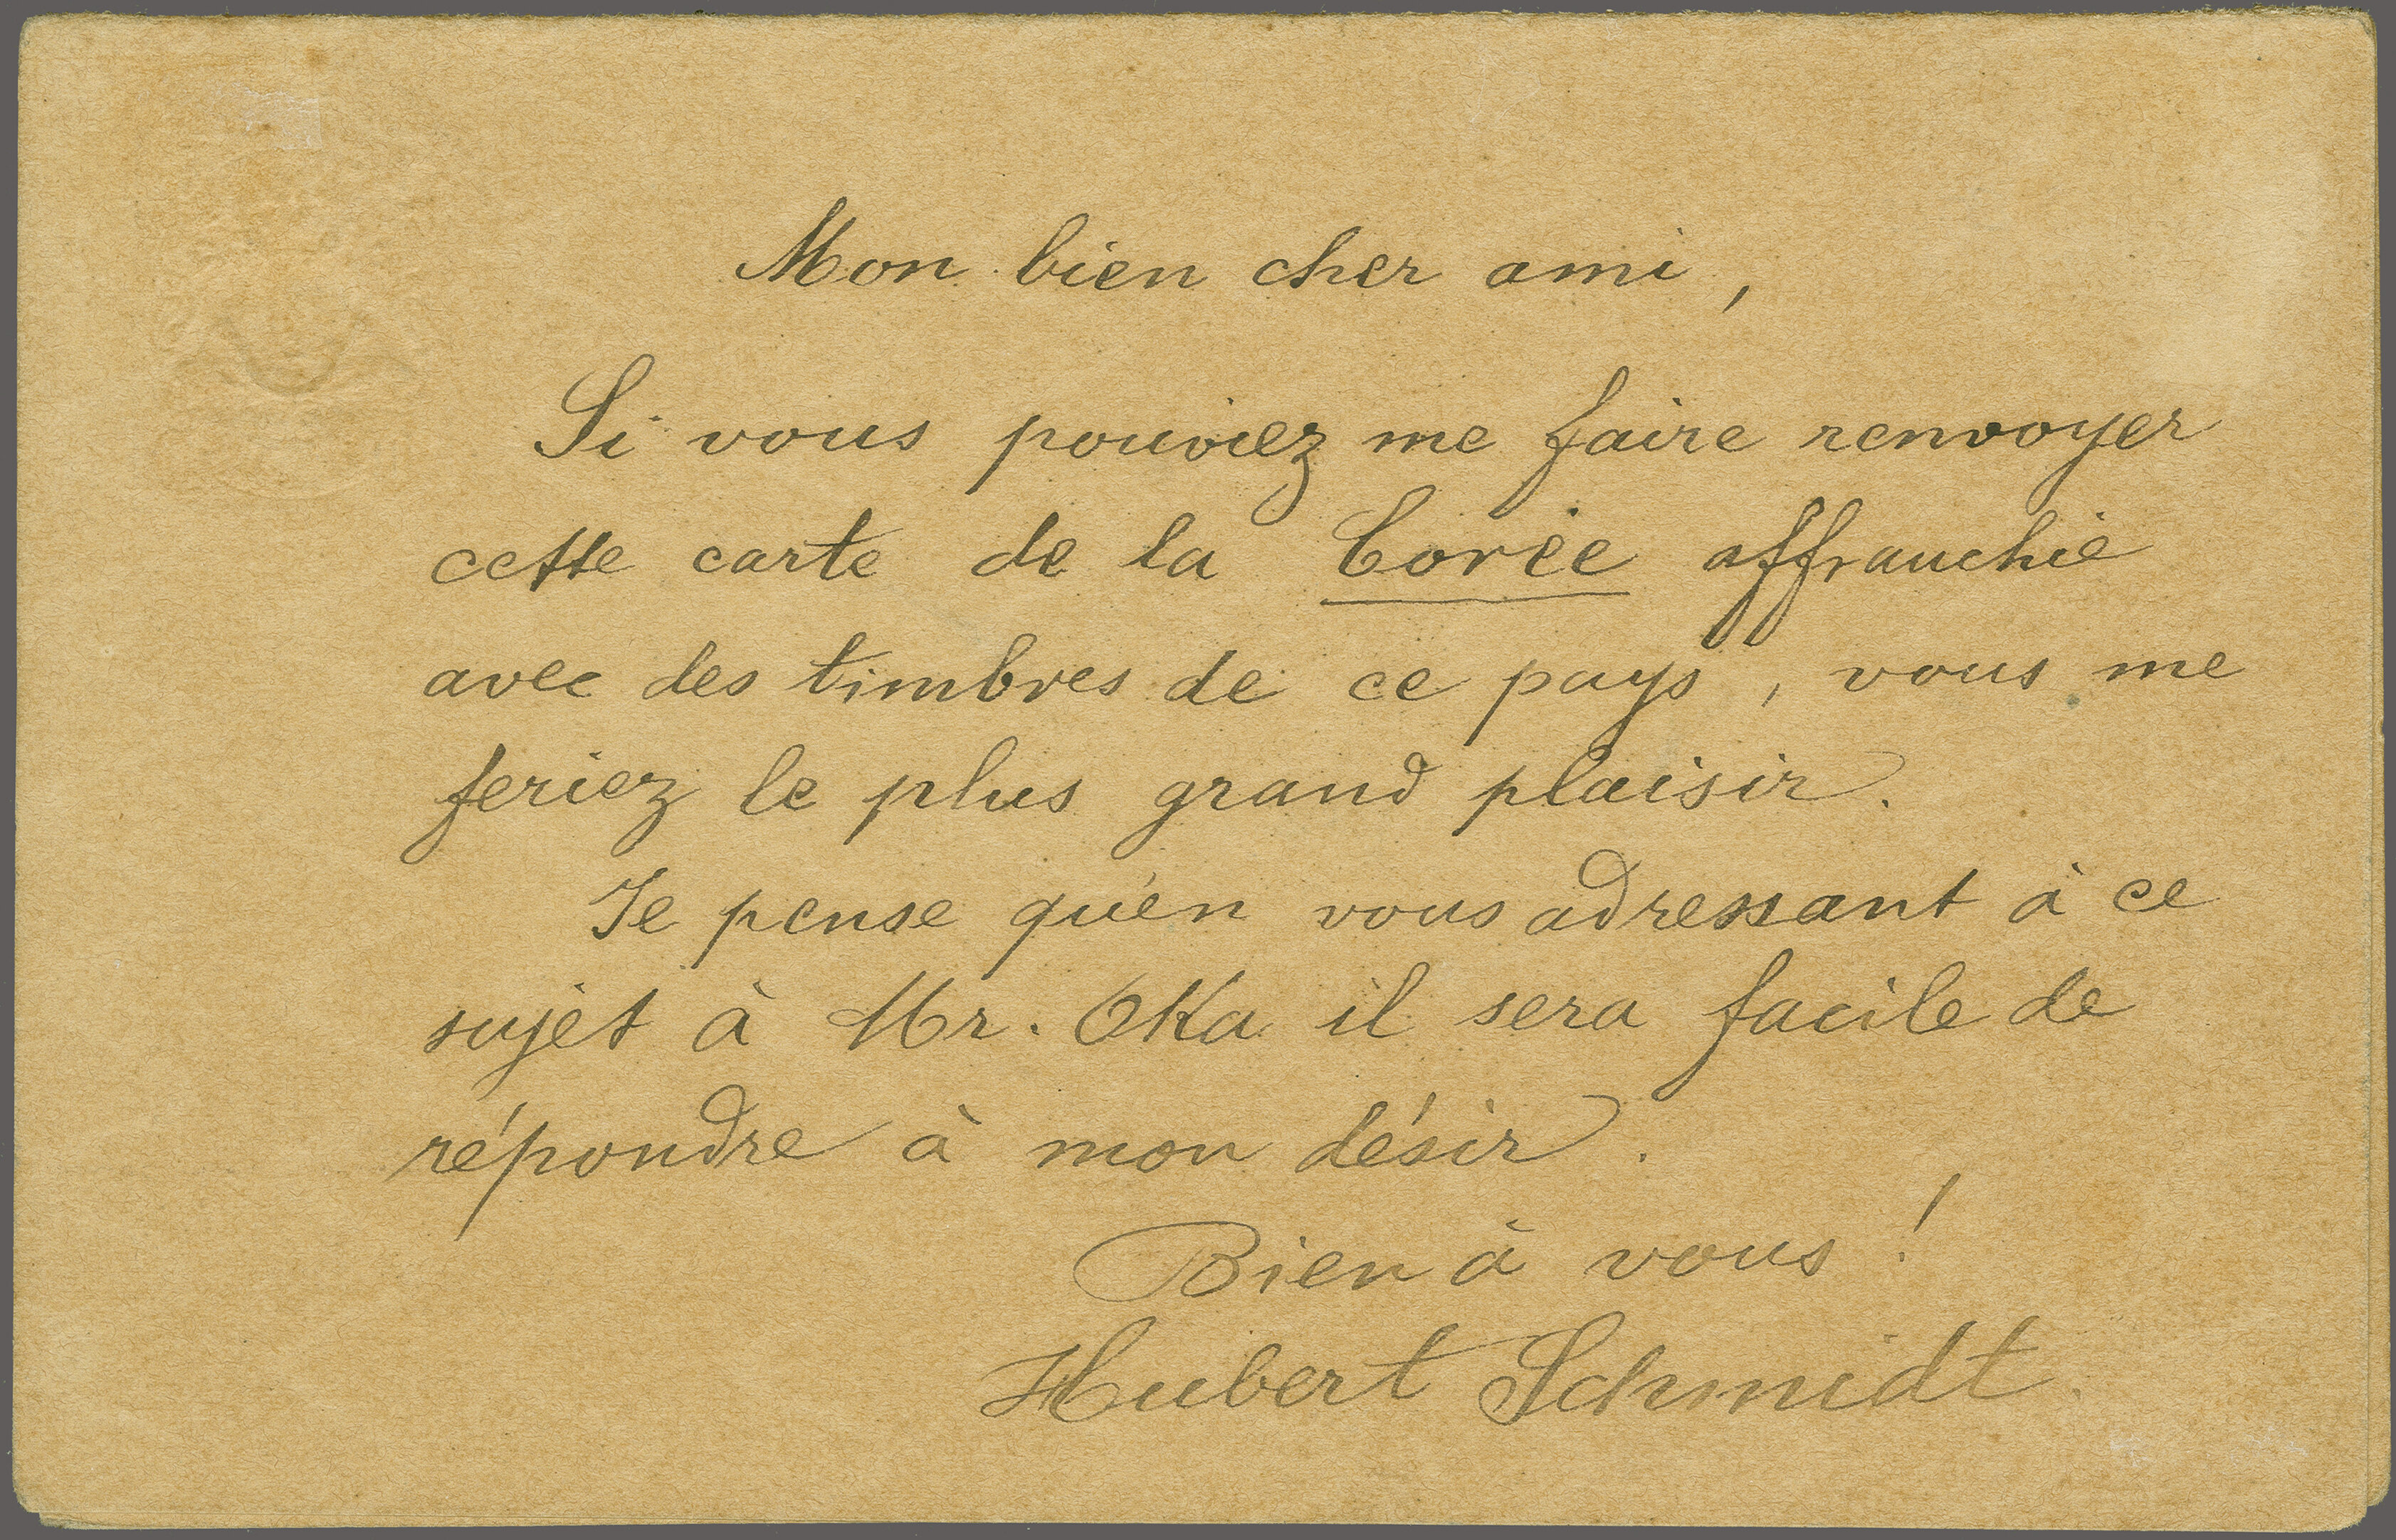 Mon bien cher ami,
Si vous pouviez me faire renvoyer
cette carte de la Corée affranchie
avec des timbres de ce pays, vous me
feriez le plus grand plaisir.
Je pense qu'en vous adressant à ce
sujet à Mr. Oka il sera facile de
répondre à mon désir.
Bien à vous !
Hubert Schmidt.